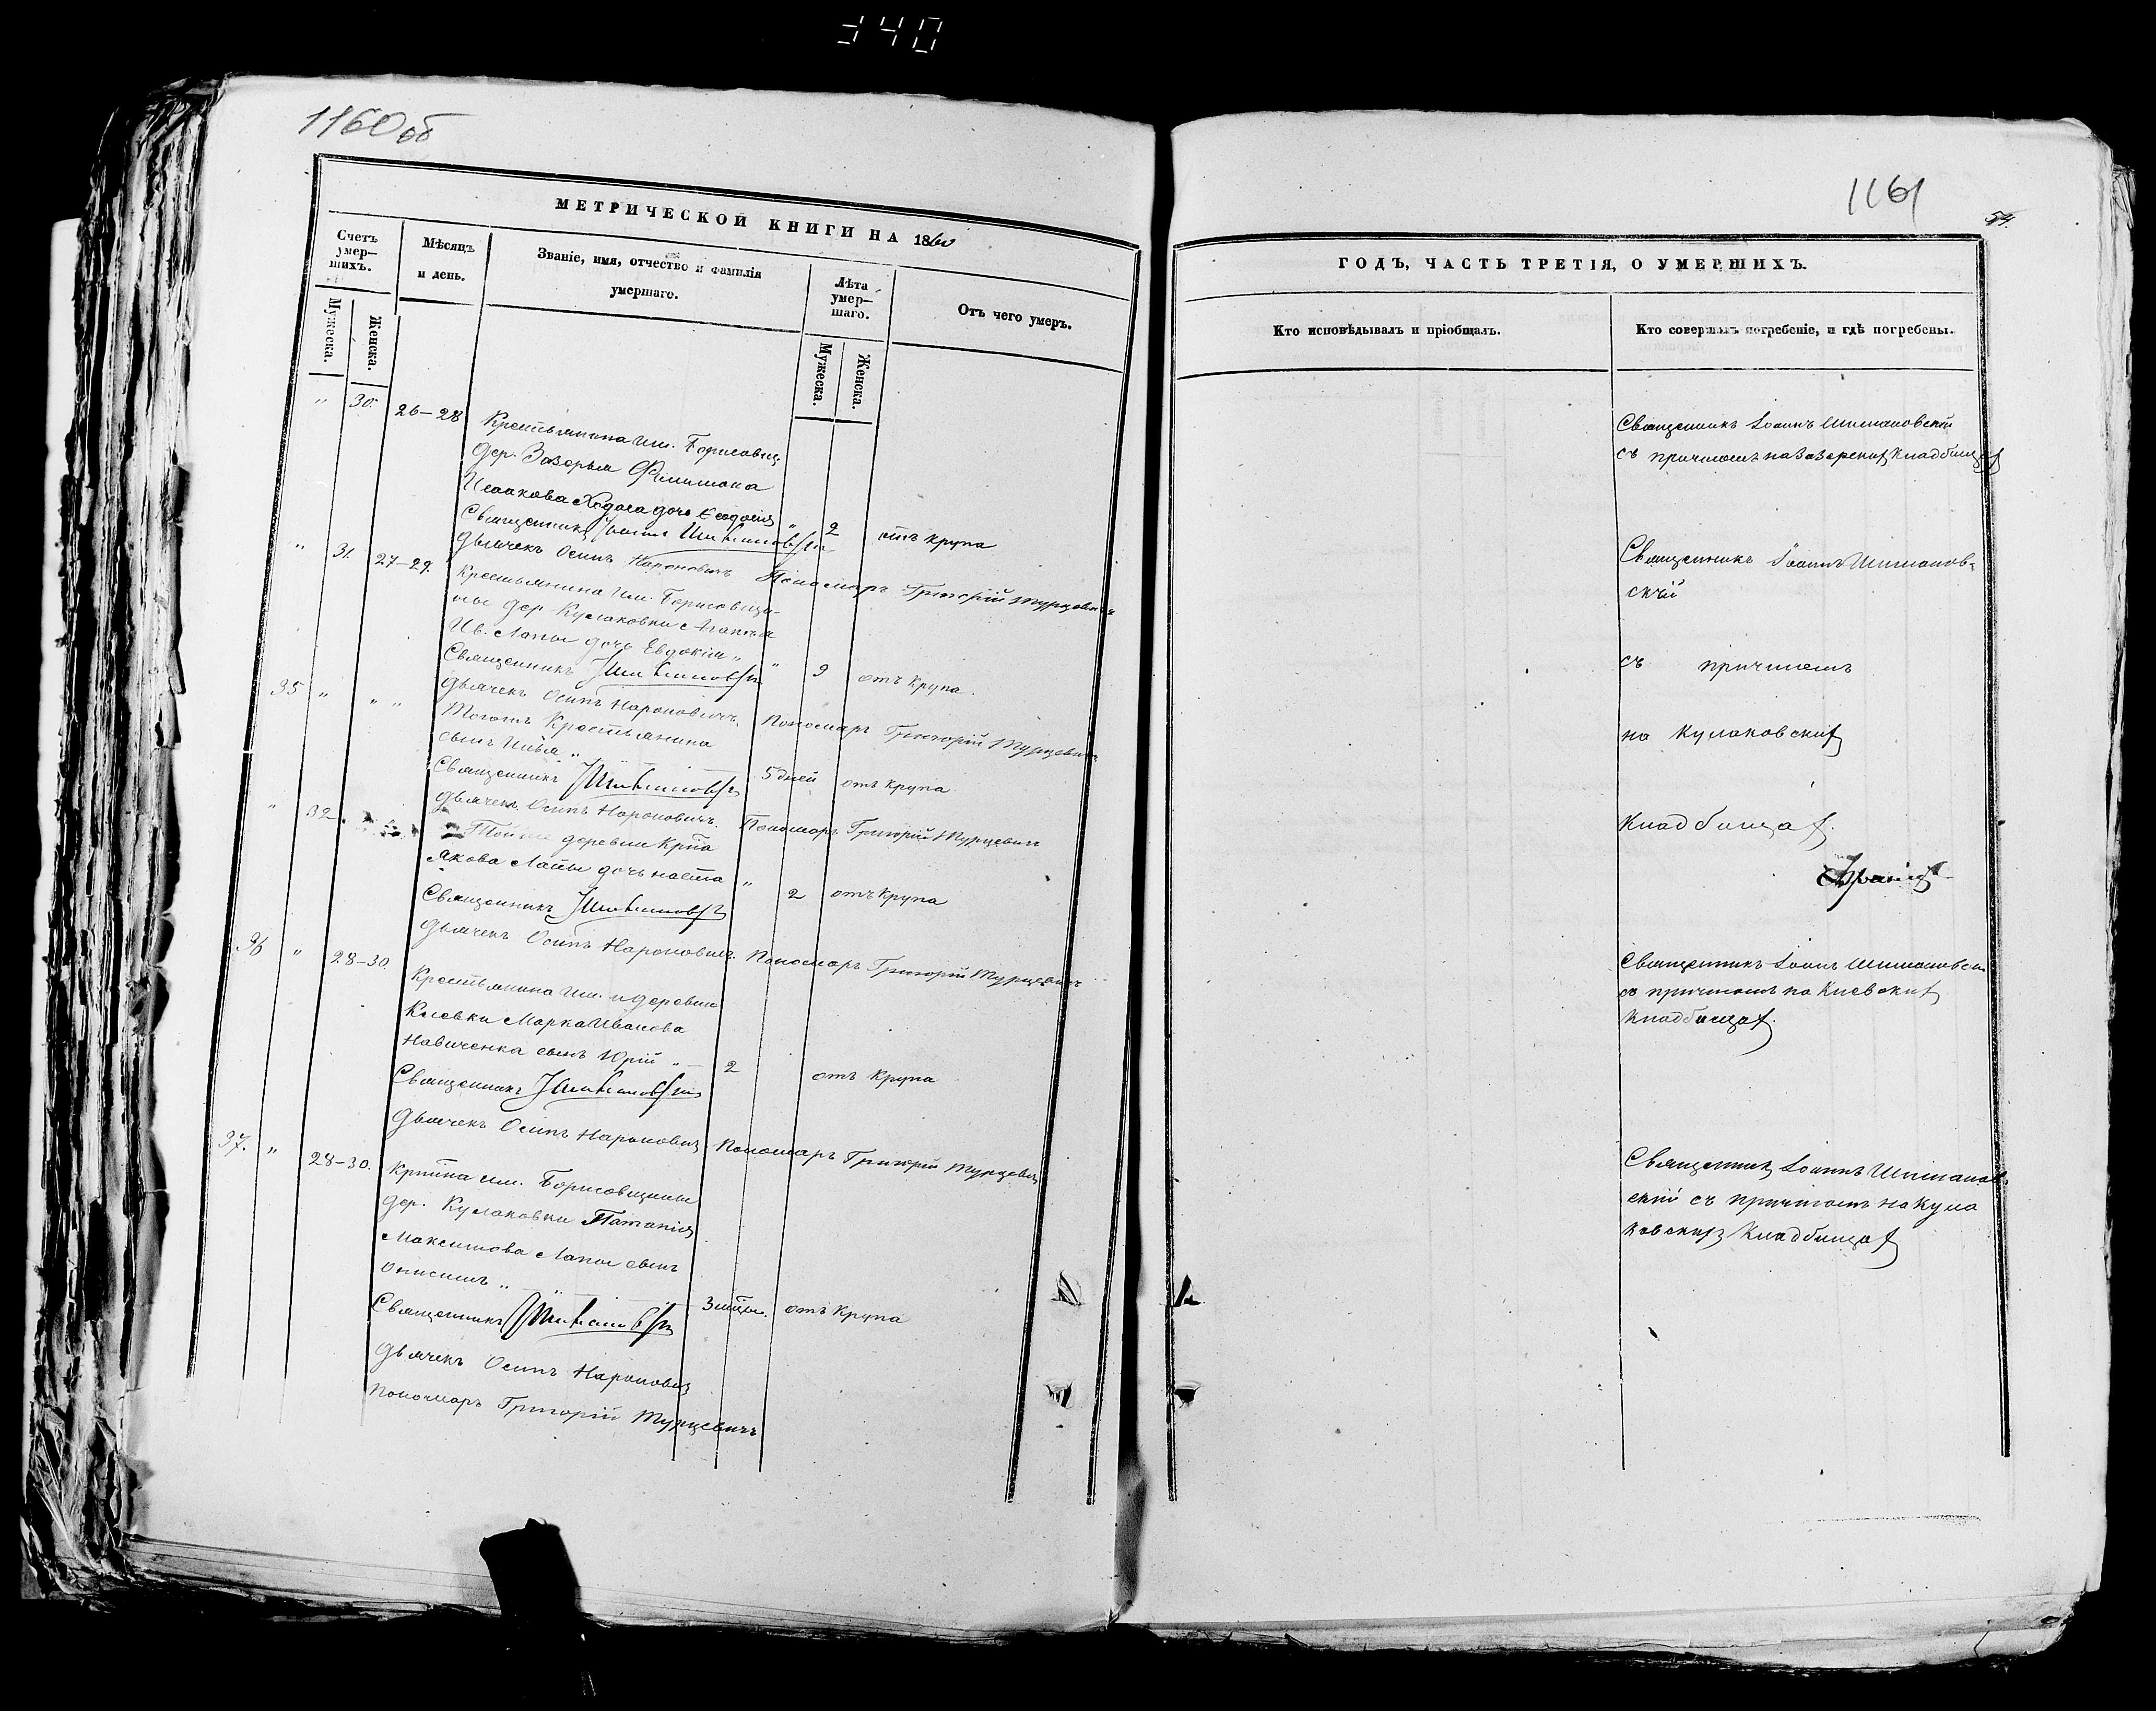 340
1160об
МЕТРИЧЕСКОЙ КНИГИ НА 1860
Счетъ умер—шихъ.
Мѣсяцъ и день.
Званіе, имя, отчество и фамилія умершаго.
Лѣта умер—шаго.
Отъ чего умеръ.
Мужеска.
Женска.
Мужеска.
Женска.
" 30. 26—28 Крестьянина им. Борисовщ.
дер. Зазерья Филимона
Исаакова Ходога дочь Ѳеодосія " 2 отъ крупа
Священникъ Іоаннъ Шимановскій
Дьячекъ Осипъ Нароновичъ Пономаръ Григорій Турцевичъ
" 31. 27—29. Крестьянина им. Борисовщи-
ны дер. Кулаковки Агапія
Ив. Лапы дочь Евдокія " " 9 отъ крупа.
Священникъ Шимановскій
Дьячекъ Осипъ Нароновичъ. Пономаръ Григорій Турцевичъ
35 " " " Тогожъ Крестьянина
сынъ Илья " 5 дней отъ крупа
Священникъ Шимановскій
Дьячекъ Осипъ Нароновичъ. Пономаръ Григорій Турцевичъ
" 32 Тойже деревни Кртна
Якова Лапы дочь Наста " 2 отъ крупа
Священникъ Шимановскій
Дьячекъ Осипъ Нароновичъ. Пономаръ Григорій Турцевичъ
36 " 28—30. Крестьянина им. и деревни
Киевки Марка Иванова
Навиченка сынъ Юрій " 2 отъ крупа
Священникъ Шимановскій
Дьячекъ Осипъ Нароновичъ Пономаръ Григорій Турцевичъ
37. " 28—30. Крстна им. Борисовщины
дер. Кулаковки Патапія
Максимова Лапы сынъ
Онисимъ " 3 мцы. отъ крупа
Священникъ Шимановскій
Дьячекъ Осипъ Нароновичъ
Пономаръ Григорій Турцевичъ
1161
54.
ГОДЪ, ЧАСТЬ ТРЕТІЯ, О УМЕРШИХЪ.
Кто исповѣдывалъ и пріобщалъ.
Кто совершалъ погребеніе, и гдѣ погребены.
Священникъ Іоаннъ Шимановскій
съ причтомъ на Зазерскихъ Кладбищахъ
Священникъ Іоаннъ Шиманов-
скій
съ причтомъ
на Кулаковскихъ
Кладбищахъ.
Священникъ Іоаннъ Шимановскій
съ причтомъ на Киевскихъ
Кладбищахъ.
Священникъ Іоаннъ Шиманов-
скій съ причтомъ на Кула
ковскихъ Кладбищахъ